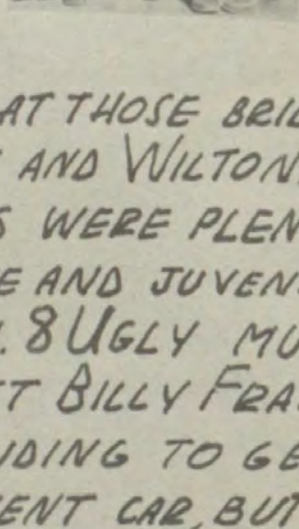 AT THOSE BRIL
AND WILTON
S WERE PLEN
E AND JUVEN
. 8 UGLY MU
T BILLY FRA
DING TO GE
ENT CAR, BUT